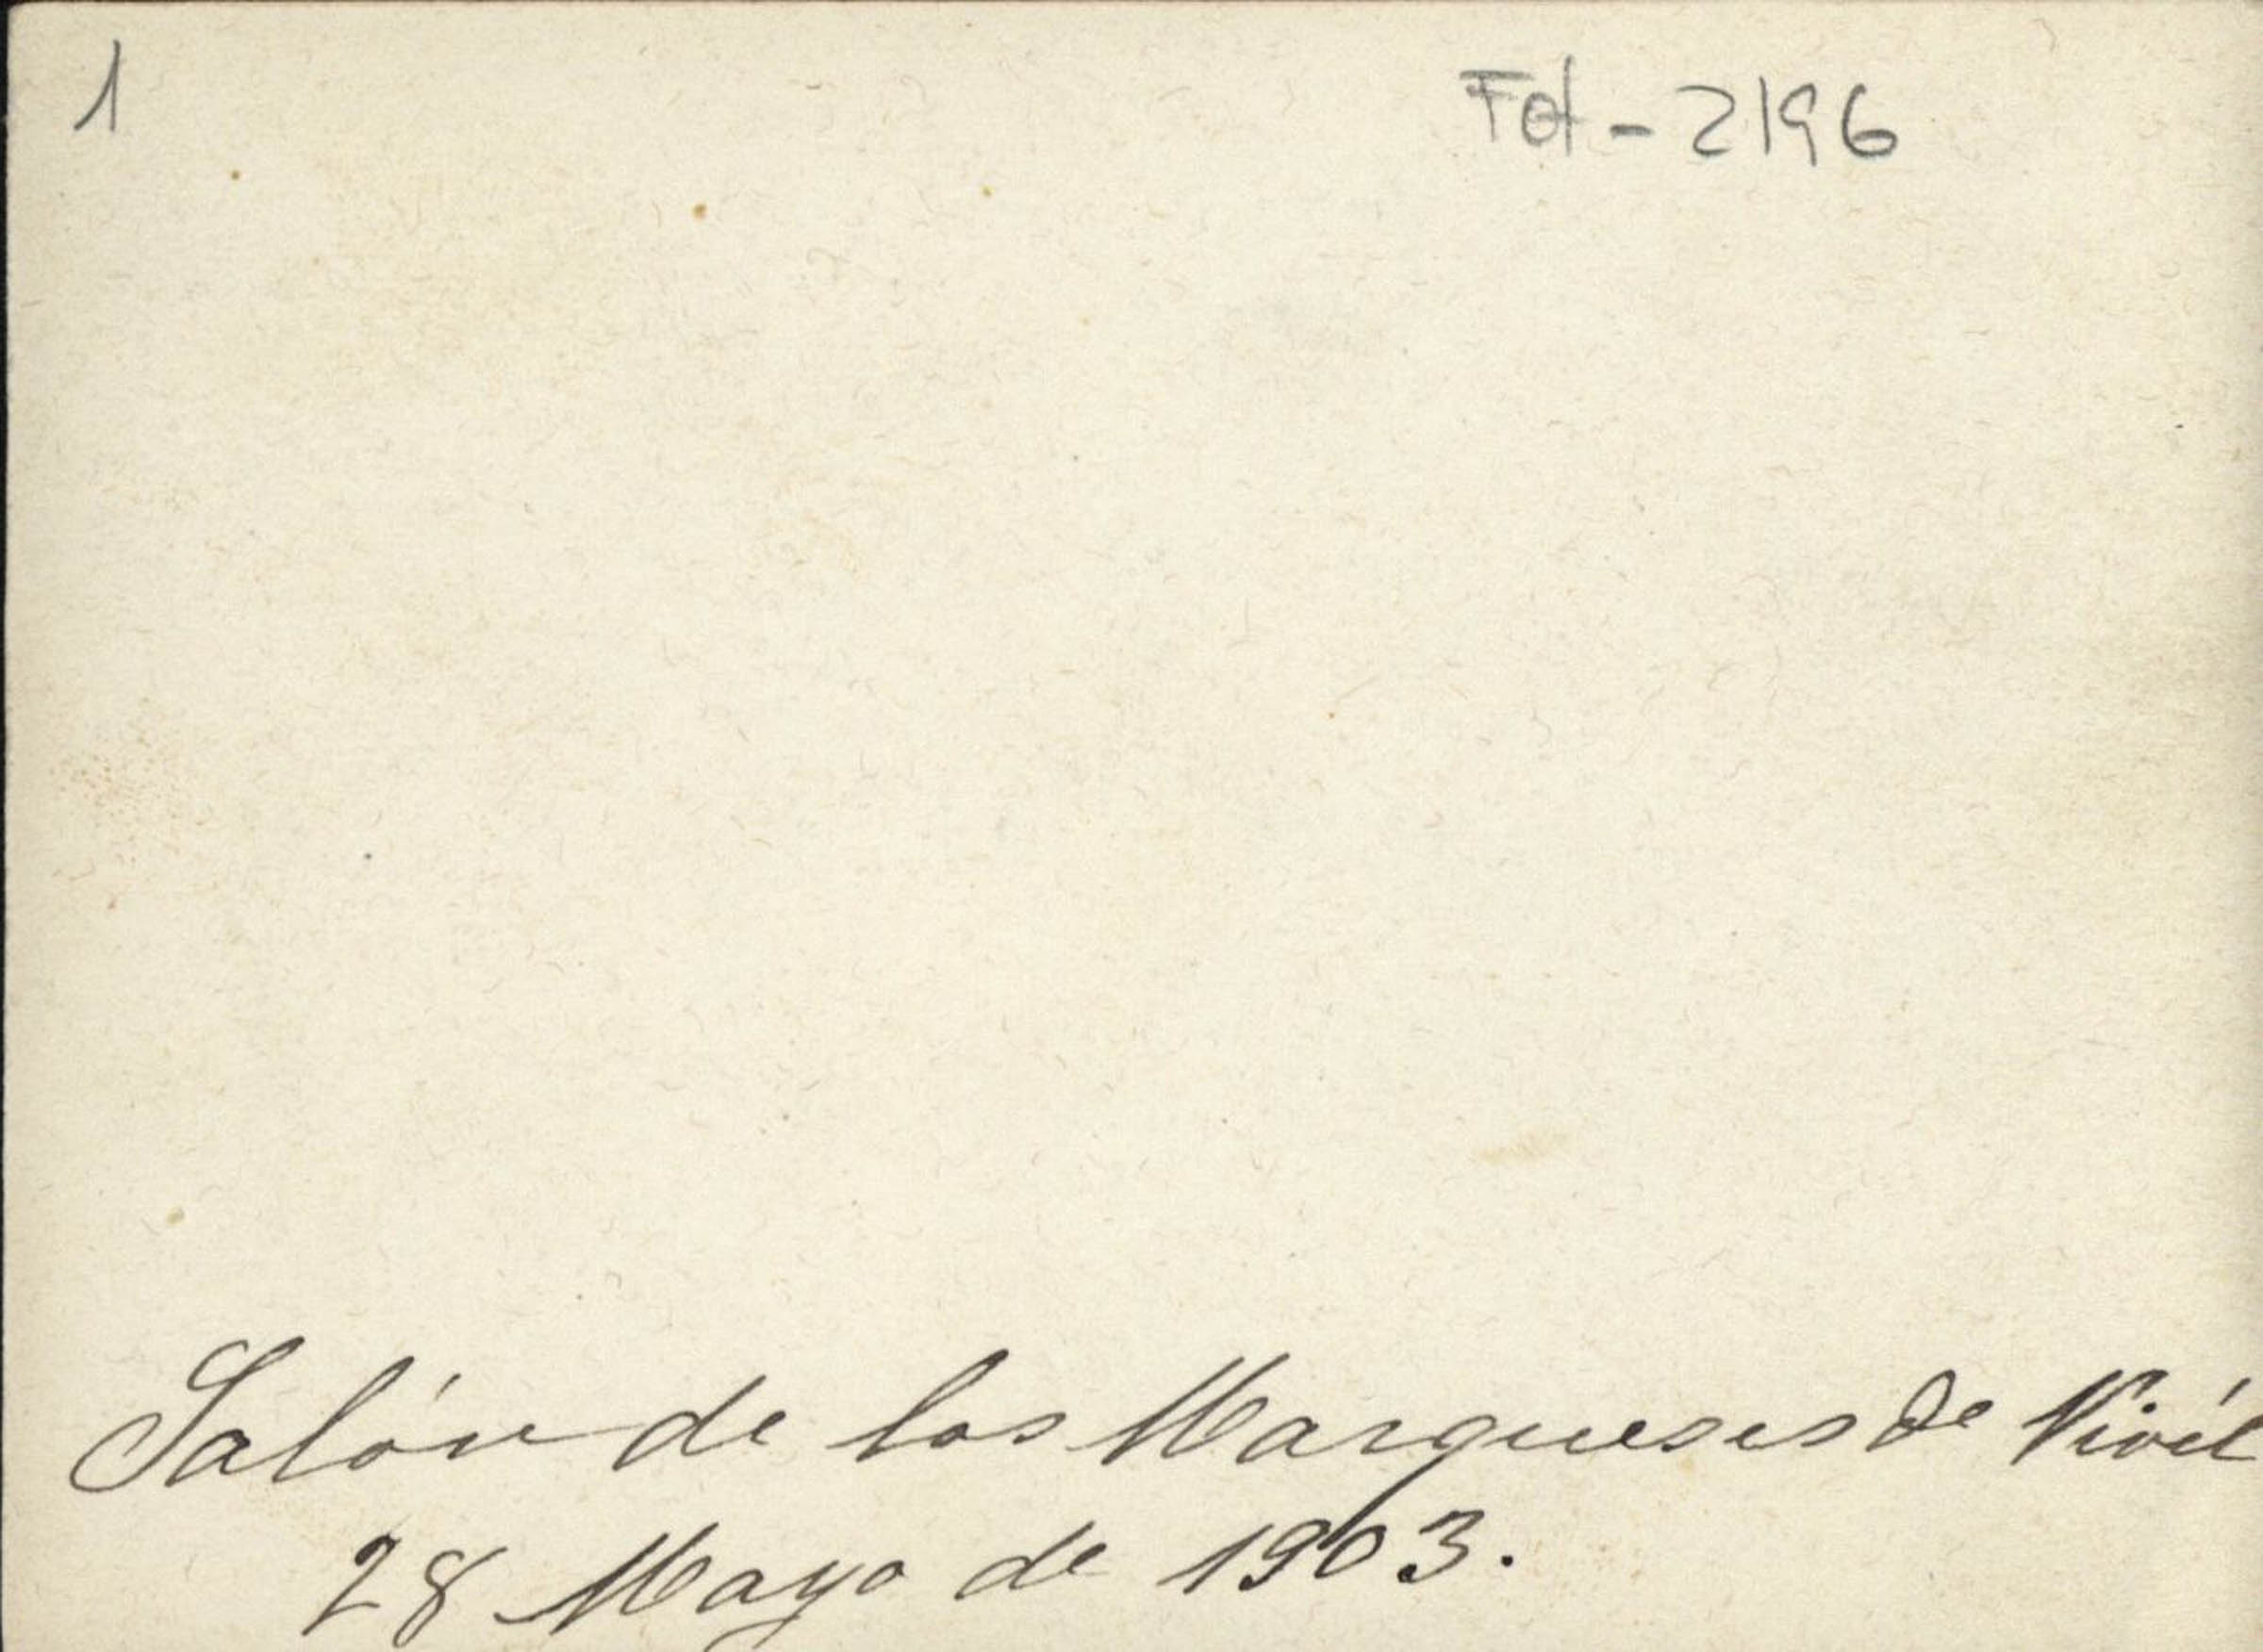 1
Fot - 2196
Salón de los Marqueses de Vivél
28 Mayo de 1903.